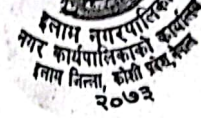 इलाम नगरपालिका
नगर कार्यपालिकाको कार्यालय
इलाम जिल्ला, कोशी प्रदेश, नेपाल
२०७३